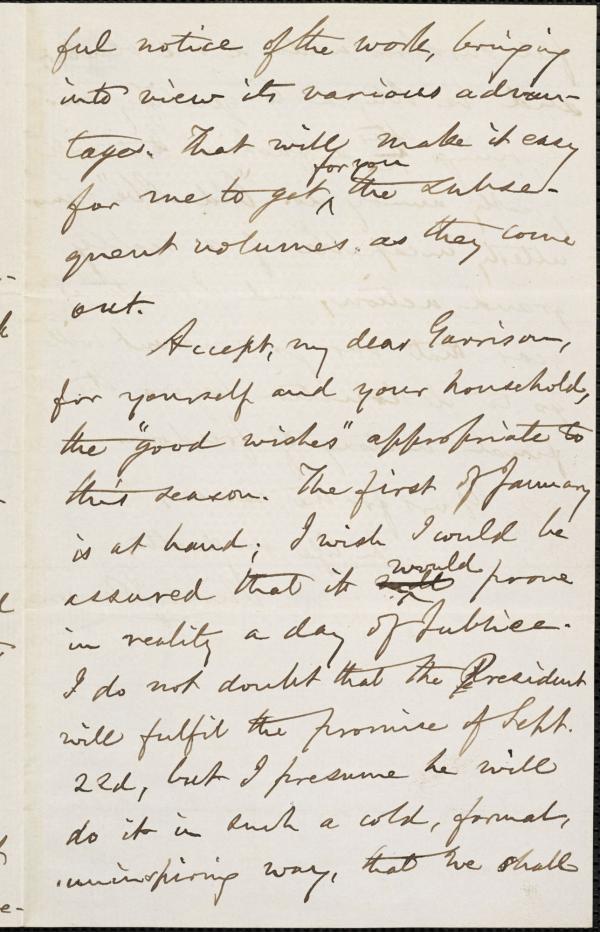 ful notice of the work, bringing
into view its various advan-
tages. That will make it easy
for me to get ‸ for you the subse-
quent volumes as they come
out.
Accept, my dear Garrison,
for yourself and your household,
the "good wishes" appropriate to
this season. The first of January
is at hand; I wish I could be
assured that it would prove
in reality a day of Jubilee.
I do not doubt that the President
will fulfil the promise of Sept.
22d, but I presume he will
do it in such a cold, formal,
uninspiring way, that we shall